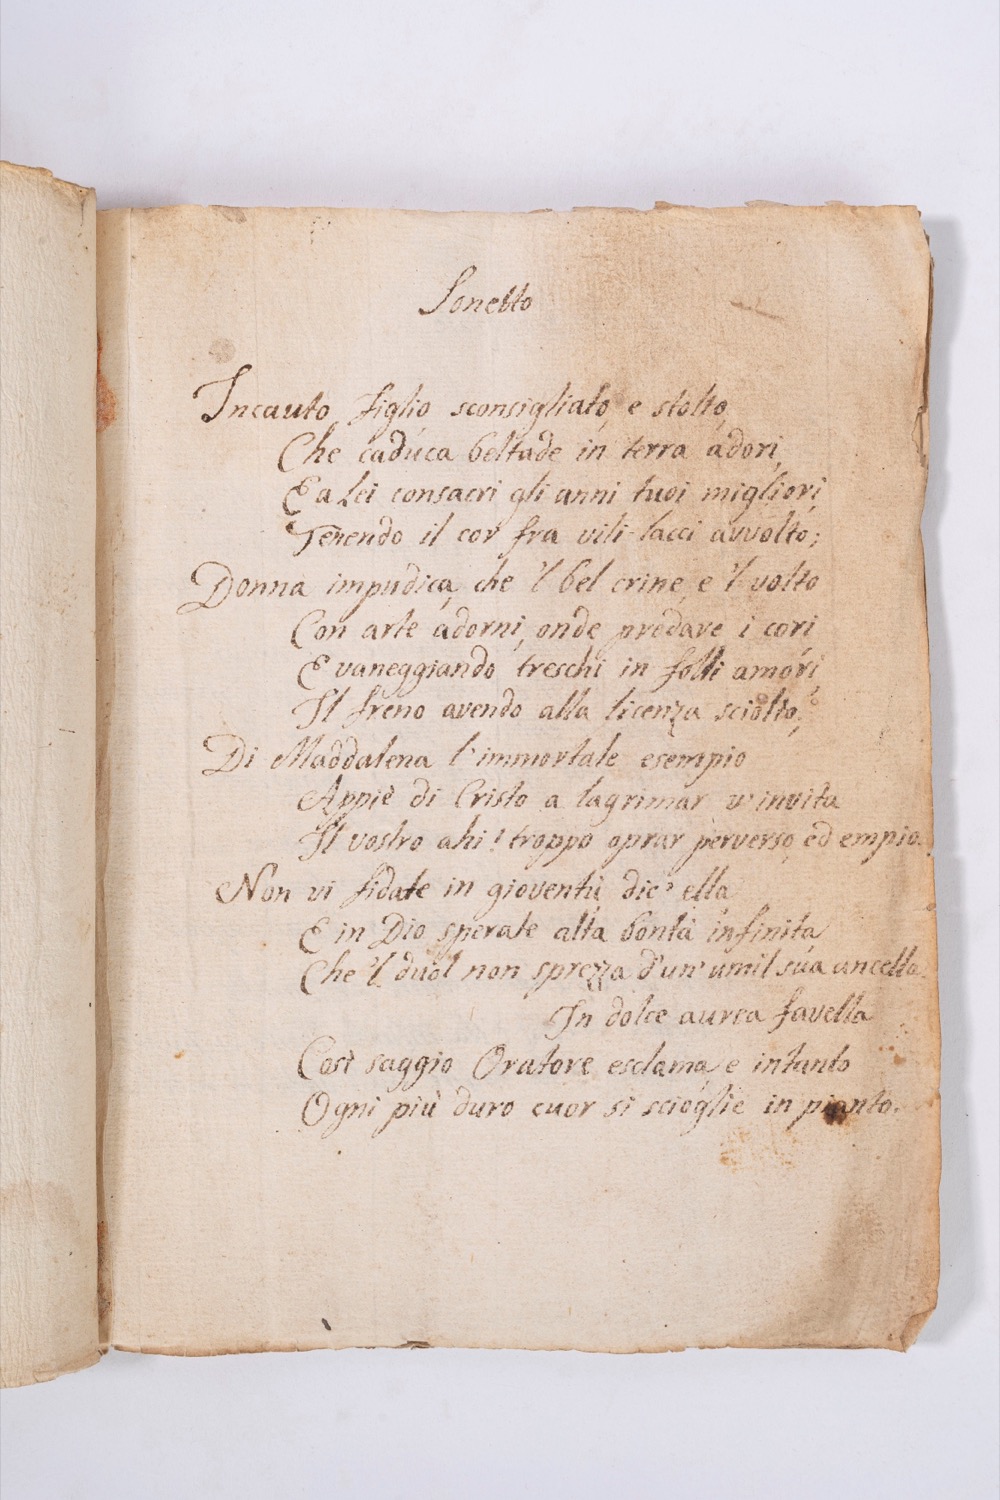 Sonetto
Incauto figlio sconsigliato, e stolto,
Che cadúca beltade in terra adori,
E a Lei consacri gli anni tuoi migliori,
Tenendo il cor fra vili lacci avvolto;
Donna impudica, che 'l bel crine, e 'l volto
Con arte adorni, onde predare i cori
E vaneggiando treschi in folli amori,
Il freno avendo alla licenza sciolto,
Di Maddalena l'immortale esempio
Appiè di Cristo a lagrimar v'invita
Il vostro ahi! troppo oprar perverso, ed empio.
Non vi fidate in gioventù, dic' ella,
E in Dio sperate alla bontà infinita
Che 'l duol non sprezza d'un' umil súa ancella.
In dolce aurea favella
Così saggio Oratore esclama, e intanto
Ogni più duro cuor si scioglie in pianto.